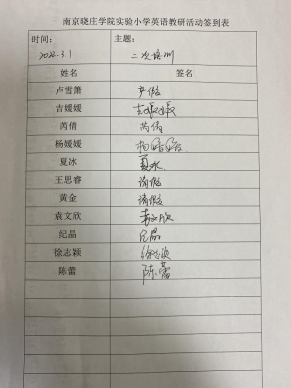 南京晓庄学院实验小学英语教研活动签到表
时间： 主题：
2022.3.1 二次培训
姓名 签名
卢雪箫 产假
吉媛媛 吉媛媛
芮倩 芮倩
杨媛媛 杨媛媛
夏冰 夏冰
王思睿 请假
黄金 请假
袁文欣 袁文欣
纪晶 纪晶
徐志颖 徐志颖
陈蕾 陈蕾